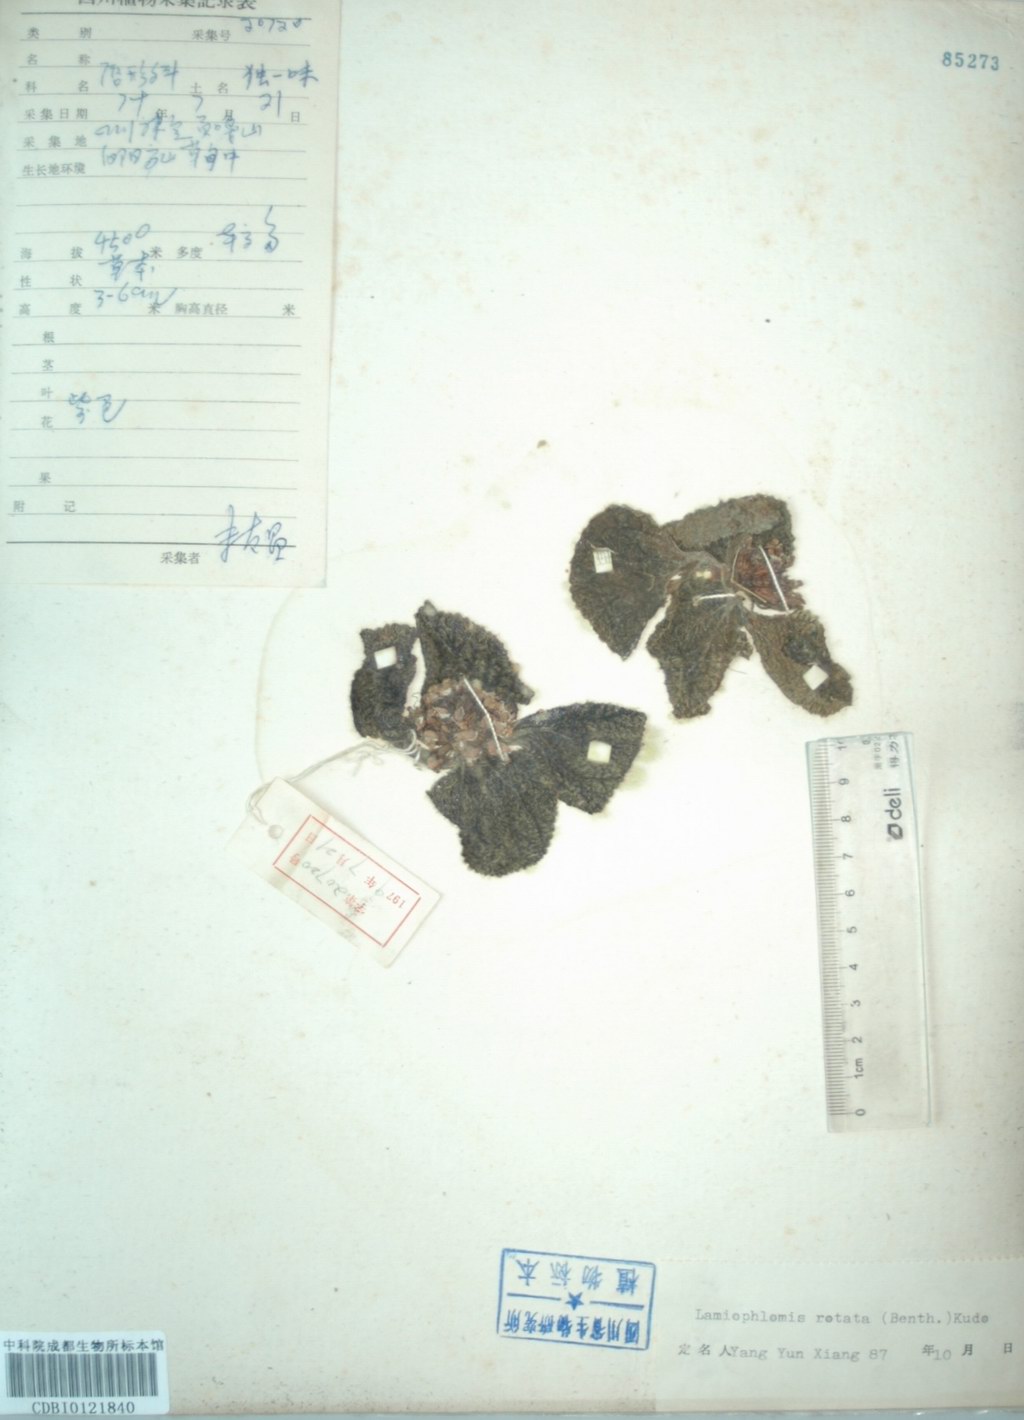 四川植物采集記录表
类 别 采集号 20720
名 称
科 名 唇形科 土 名 独一味
采集日期 年 7 月 21 日
采 集 地 四川
生长地环境
海 拔 4500 米 多度
性 状 草本
高 度 3-6cm 米 胸高直径 米
根
茎
叶
花 紫色
果
附 记
采集者
85273
字第20720号
1979年7月21日
10 9 8 7 6 5 4 3 2 1cm 0
deli 得力
四川省生物研究所
植物标本
Lamiophlomis rotata (Benth.)Kudo
定 名 人Yang Yun Xiang 87 年10 月 日
中科院成都生物所标本馆
CDBI0121840